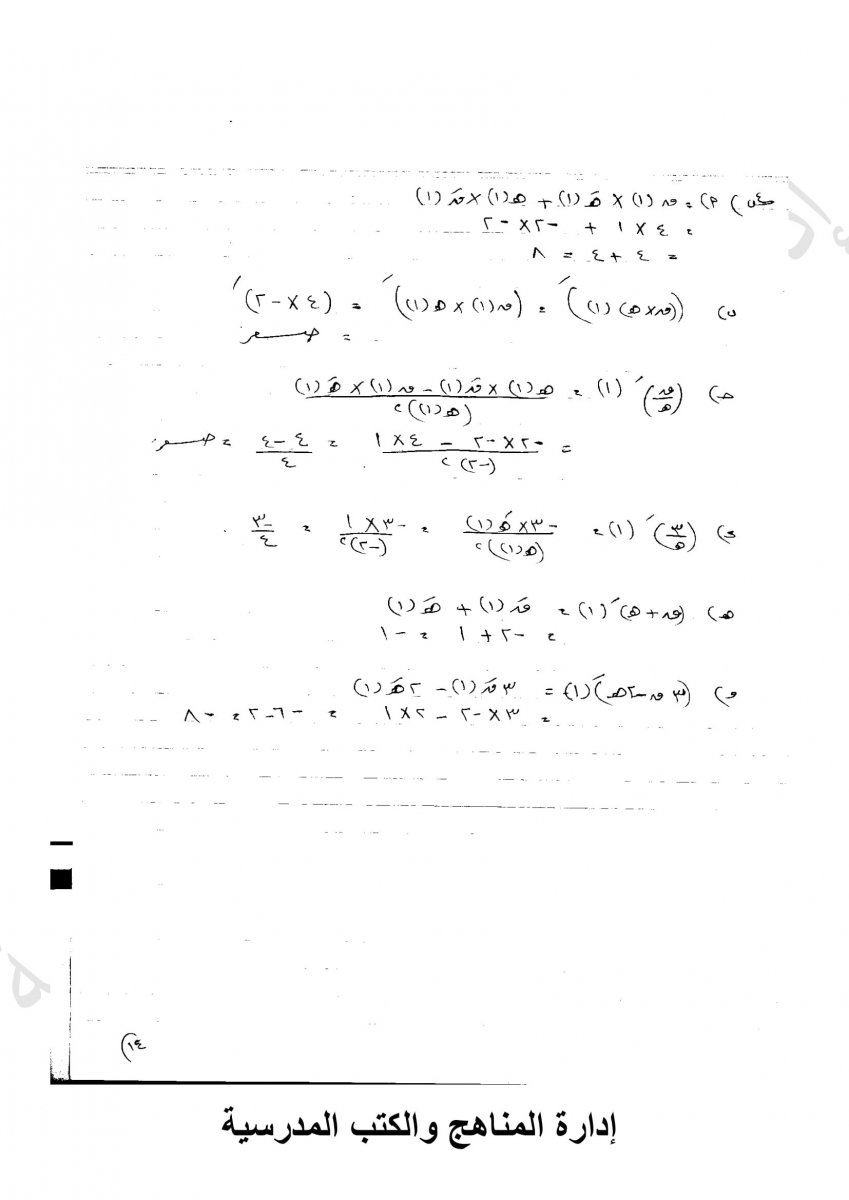 س٤) ٢) = ق(١) × هَ(١) + هـ(١) × قَ(١)
= ٤ × ١ + -٢ × -٢
= ٤ + ٤ = ٨
ب) ((ق × هـ)(١))َ = (ق(١) × هـ(١))َ = (٤ × -٢)َ
= صفر
جـ) (ق/هـ)َ(١) = (هـ(١) × قَ(١) - ق(١) × هَ(١)) / (هـ(١))٢
= (-٢ × -٢ - ٤ × ١) / (-٢)٢ = (٤ - ٤) / ٤ = صفر
د) (٣/هـ)َ(١) = (-٣ × هَ(١)) / (هـ(١))٢ = (-٣ × ١) / (-٢)٢ = -٣/٤
هـ) (ق + هـ)َ(١) = قَ(١) + هَ(١)
= -٢ + ١ = -١
و) (٣ ق - ٢هـ)َ(١) = ٣قَ(١) - ٢هَ(١)
= ٣ × -٢ - ٢ × ١ = -٦ - ٢ = -٨
(١٤
إدارة المناهج والكتب المدرسية